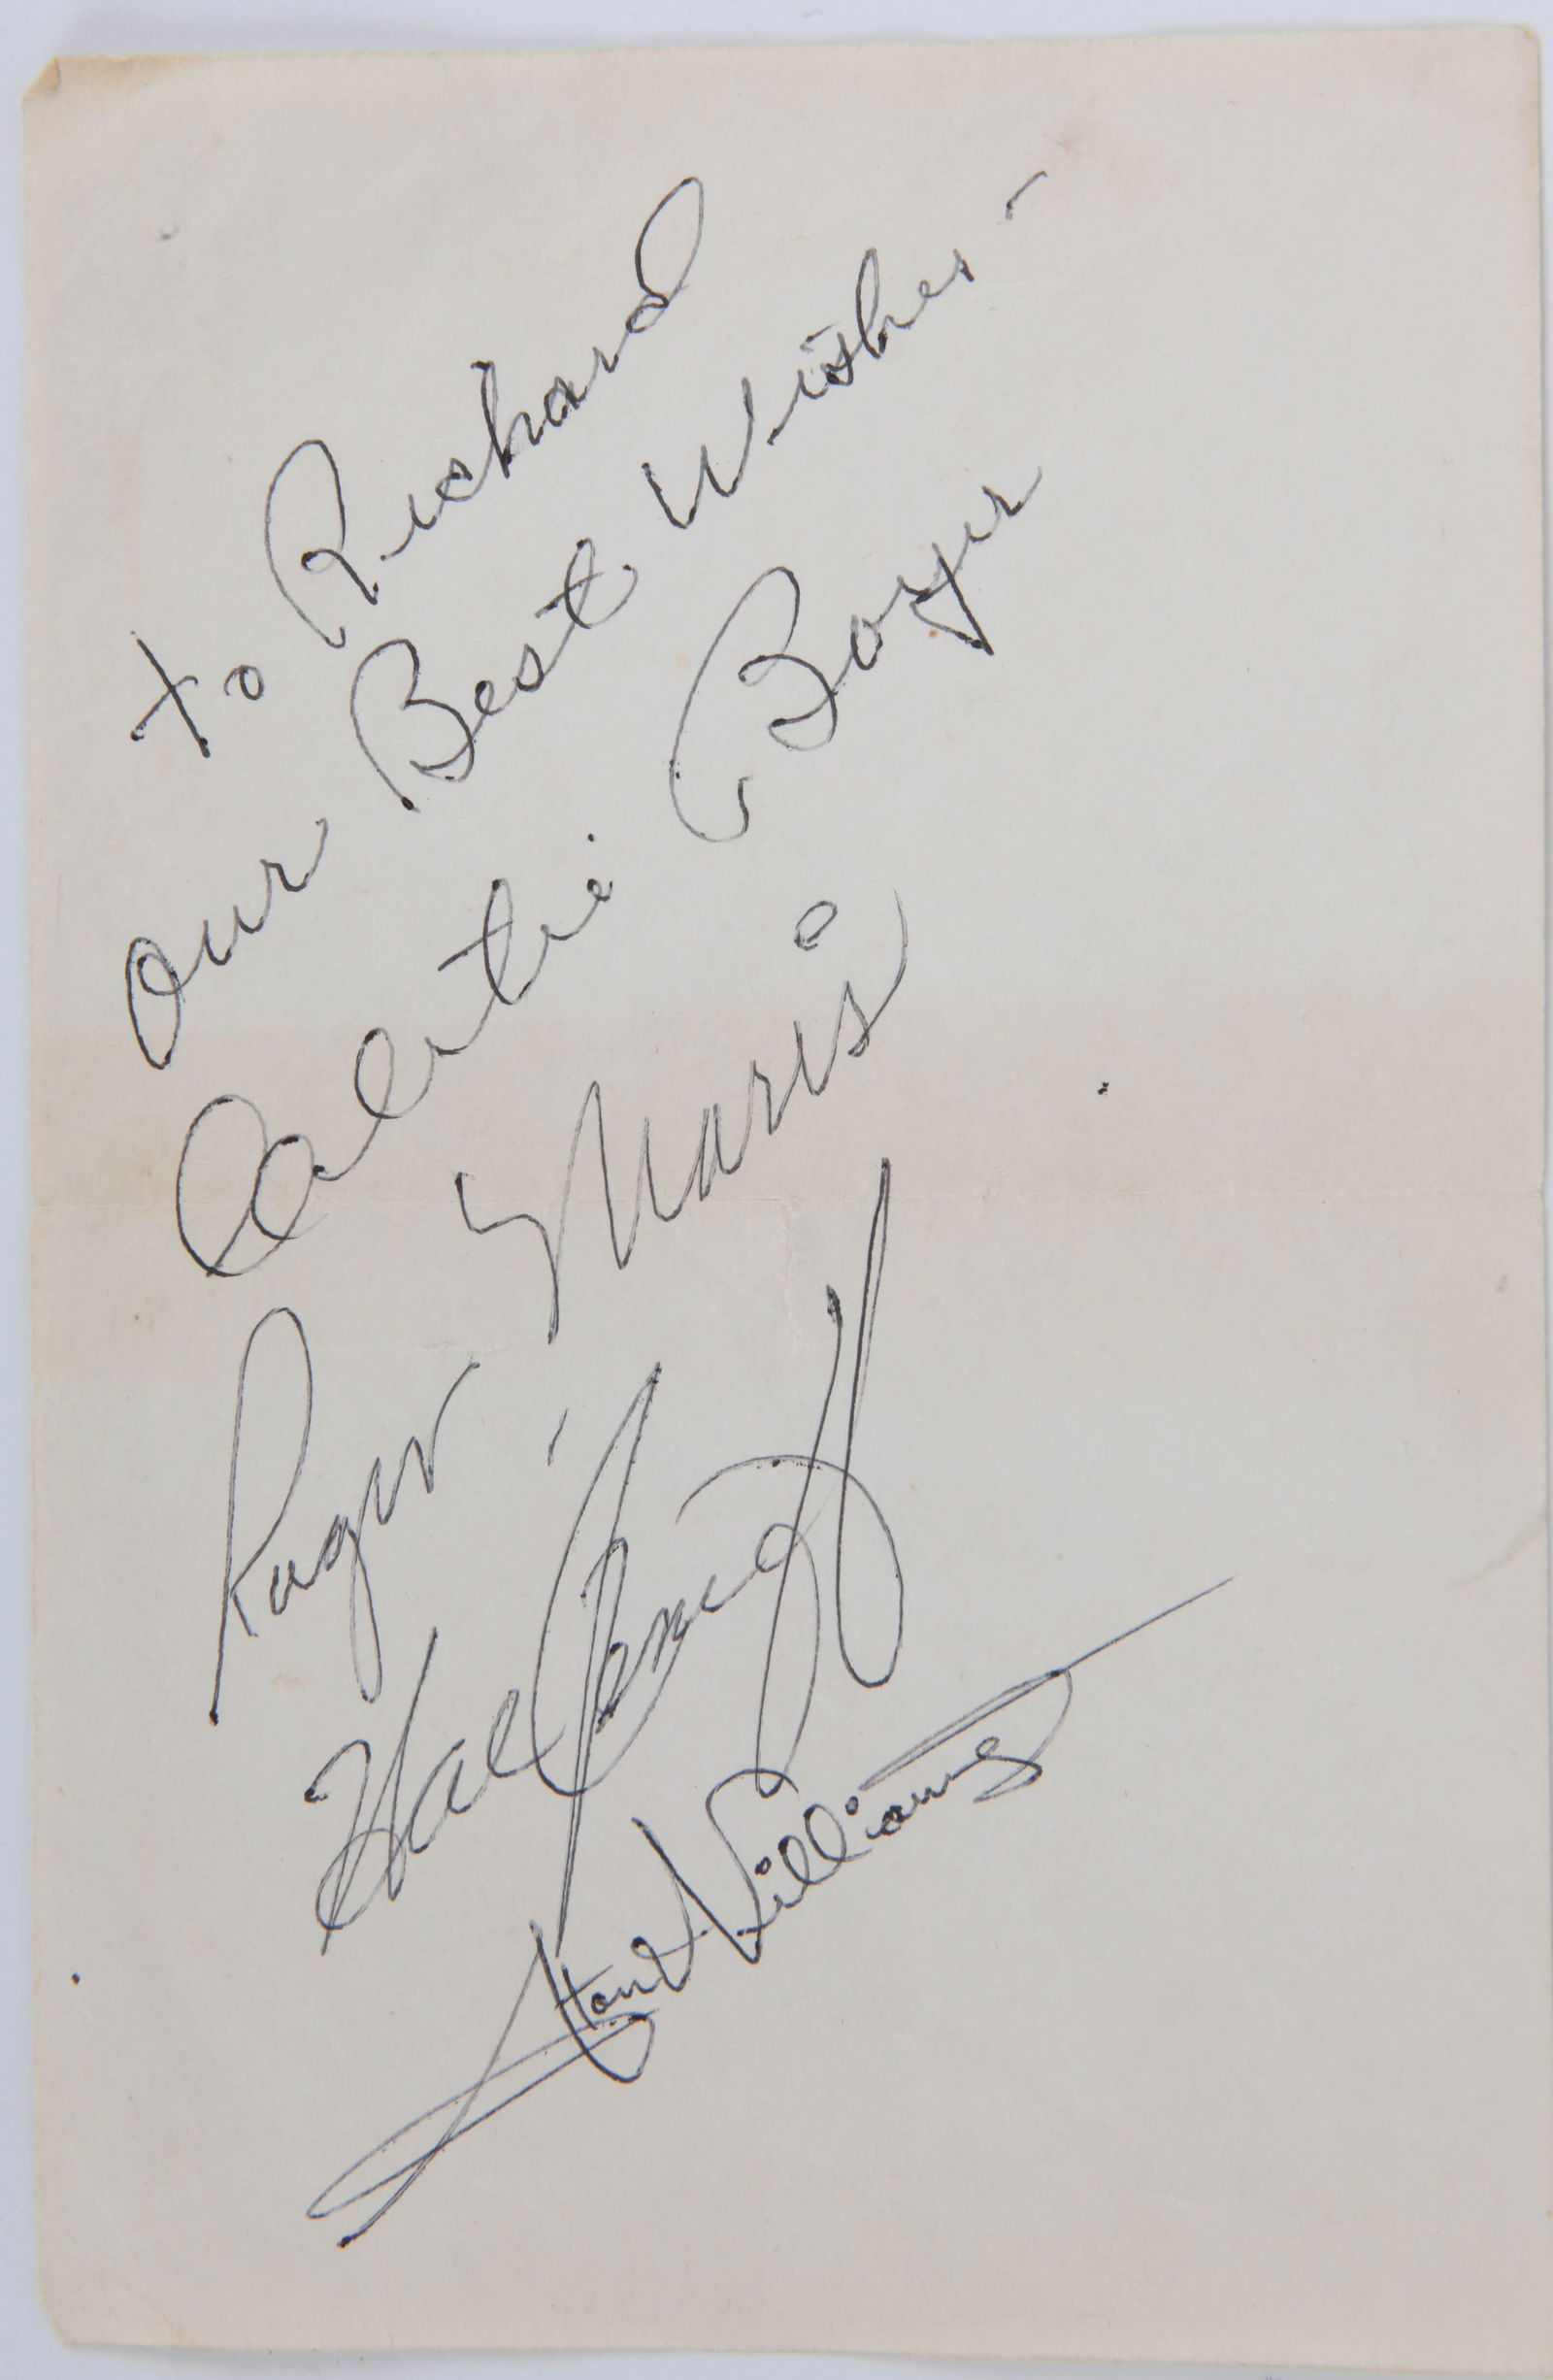 to Richard
Our Best Wishes -
Cletis Boyer
Roger Maris
Hal
Stan Williams